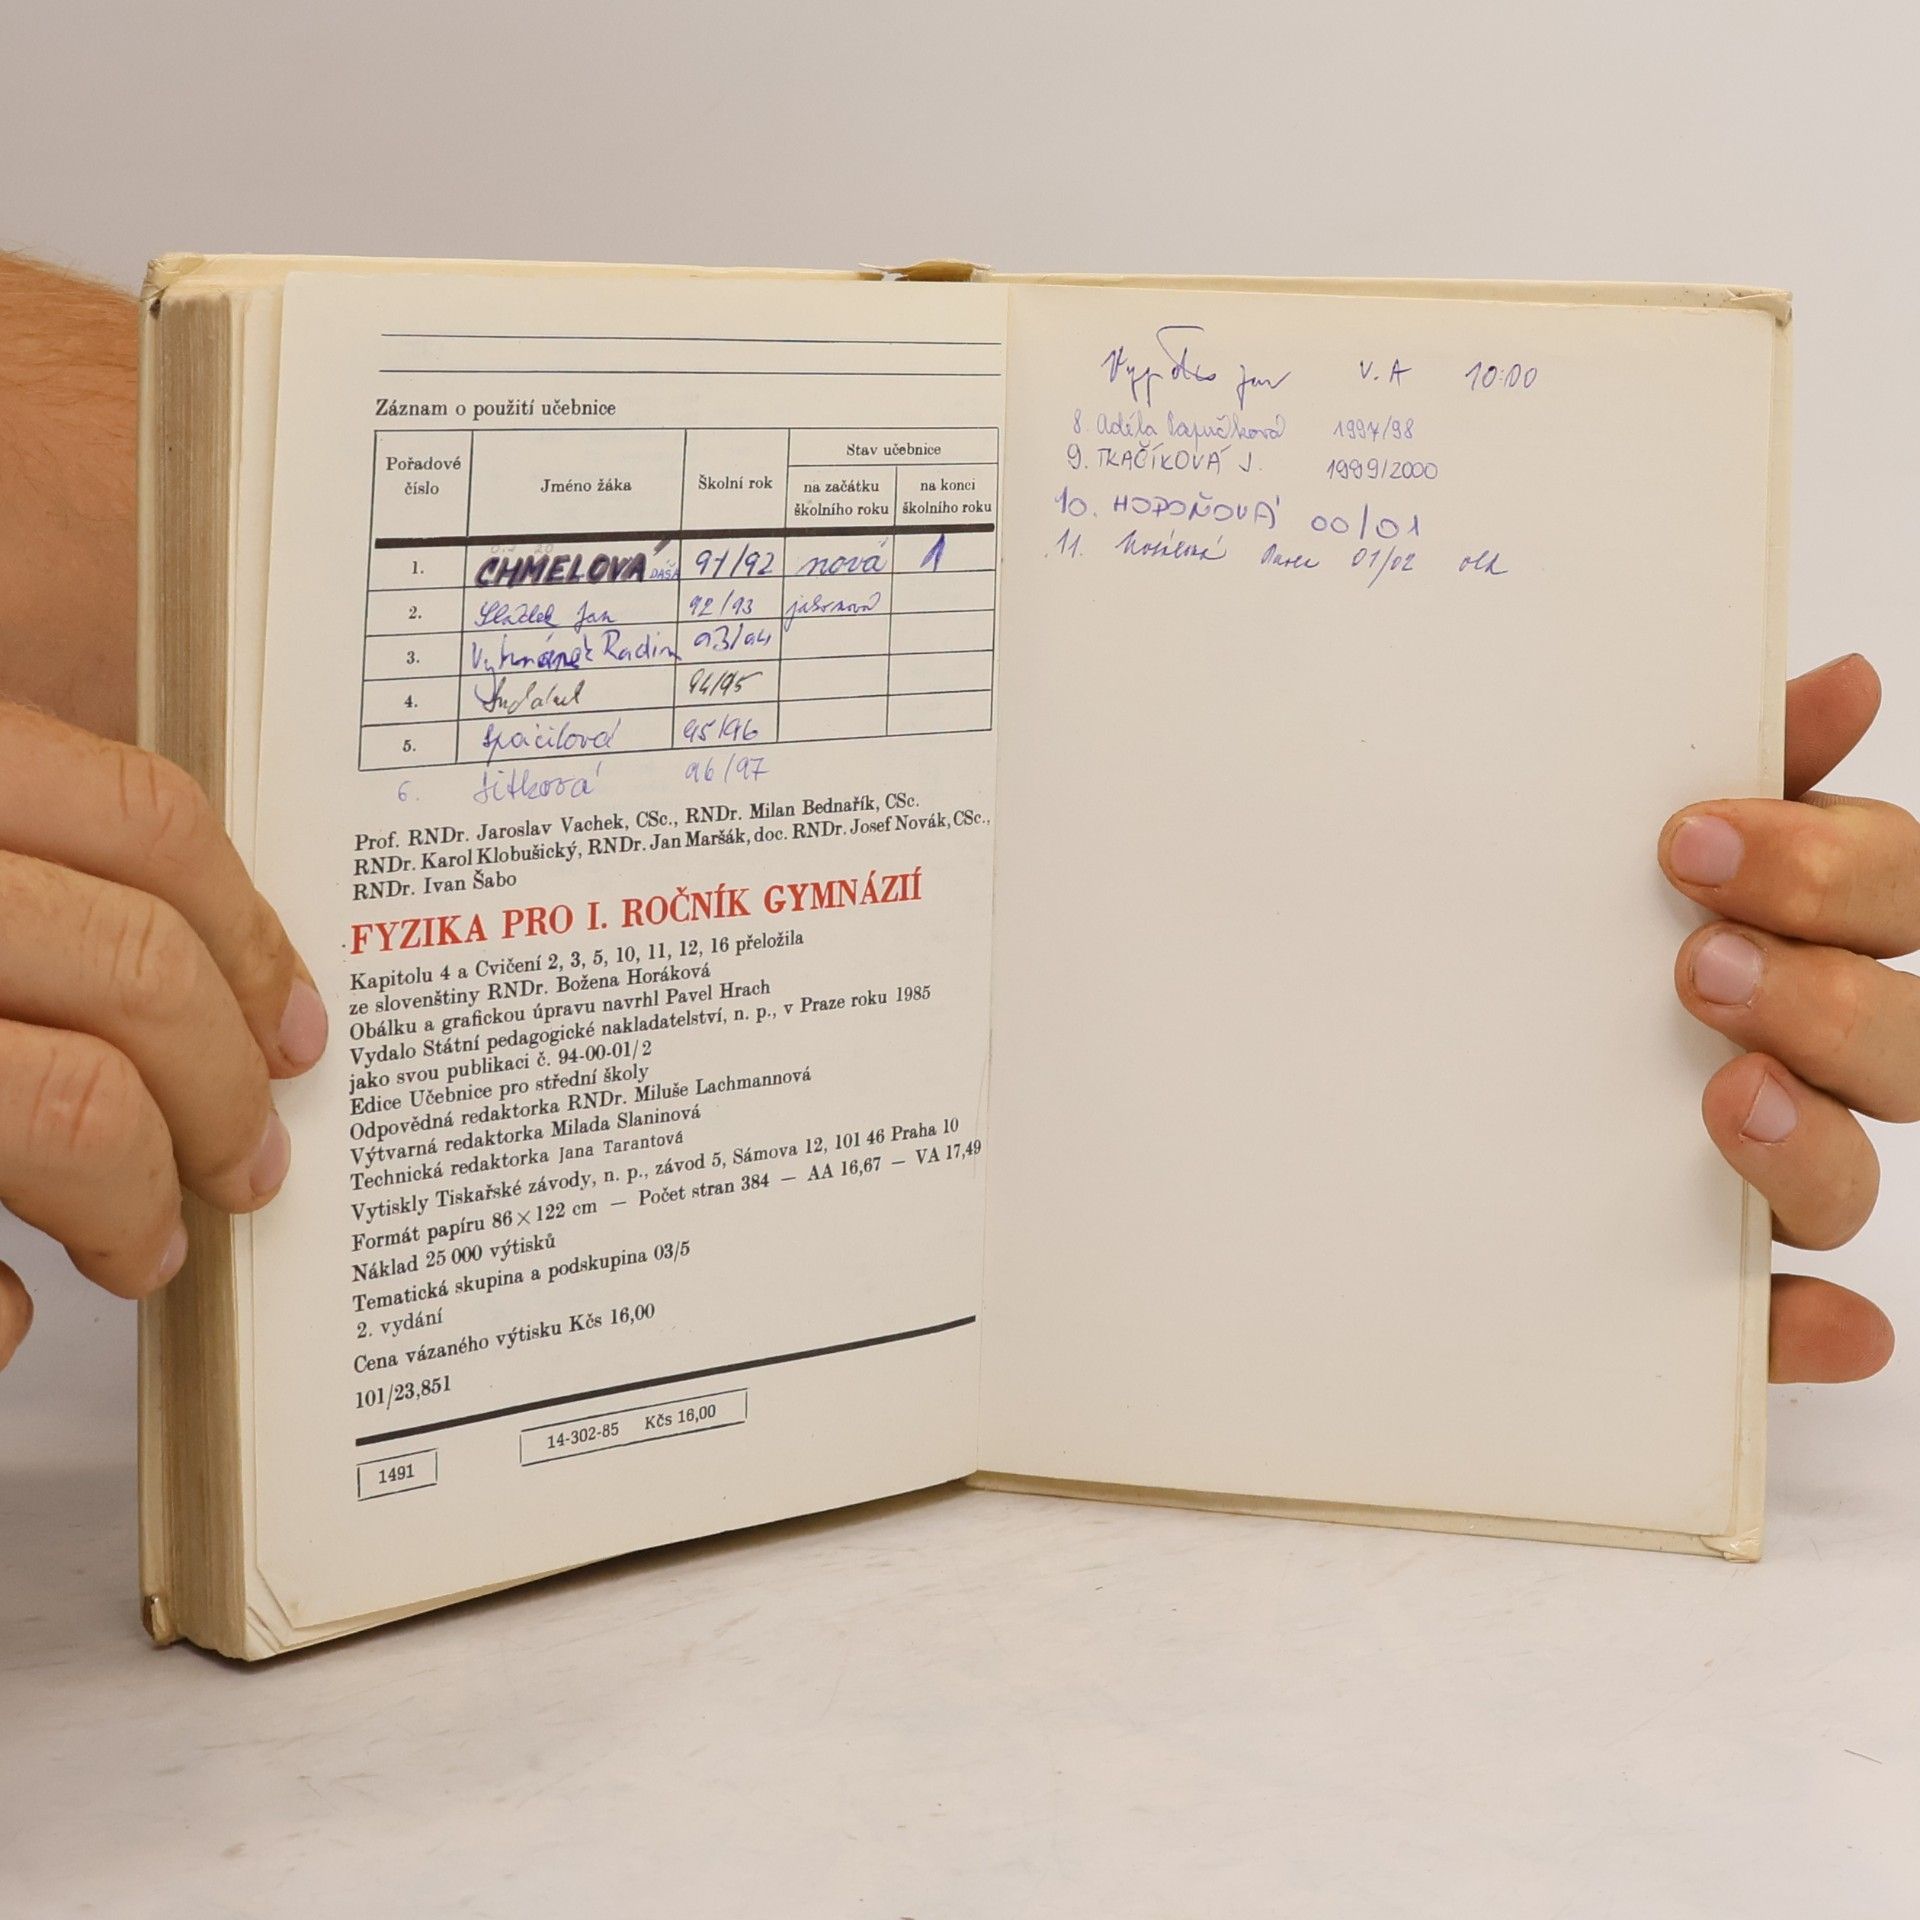 Záznam o použití učebnice
Pořadové číslo
Jméno žáka
Školní rok
Stav učebnice
na začátku školního roku
na konci školního roku
1. CHMELOVÁ DAŠA 91/92 nová 1
2. Sládek Jan 92/93 jakonová
3. Radim 93/94
4. 94/95
5. Spáčilová 95/96
6. Sitková 96/97
Prof. RNDr. Jaroslav Vachek, CSc., RNDr. Milan Bednařík, CSc.
RNDr. Karol Klobušický, RNDr. Jan Maršák, doc. RNDr. Josef Novák, CSc.,
RNDr. Ivan Šabo
FYZIKA PRO I. ROČNÍK GYMNÁZIÍ
Kapitolu 4 a Cvičení 2, 3, 5, 10, 11, 12, 16 přeložila
ze slovenštiny RNDr. Božena Horáková
Obálku a grafickou úpravu navrhl Pavel Hrach
Vydalo Státní pedagogické nakladatelství, n. p., v Praze roku 1985
jako svou publikaci č. 94-00-01/2
Edice Učebnice pro střední školy
Odpovědná redaktorka RNDr. Miluše Lachmannová
Výtvarná redaktorka Milada Slaninová
Technická redaktorka Jana Tarantová
Vytiskly Tiskařské závody, n. p., závod 5, Sámova 12, 101 46 Praha 10
Formát papíru 86×122 cm — Počet stran 384 — AA 16,67 — VA 17,49
Náklad 25 000 výtisků
Tematická skupina a podskupina 03/5
2. vydání
Cena vázaného výtisku Kčs 16,00
101/23,851
14-302-85 Kčs 16,00
1491
Jan V. A 10:00
8. Adéla 1997/98
9. TKAČÍKOVÁ J. 1999/2000
10. HODOŇOVÁ 00/01
11. 01/02